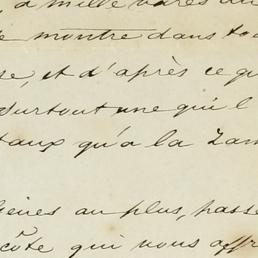 , a mille varas au
e montre dans to
se, et d'après ce qu
surtout une qu'il
taux qu'a la Zam
heures au plus, passe
côte qui nous affr